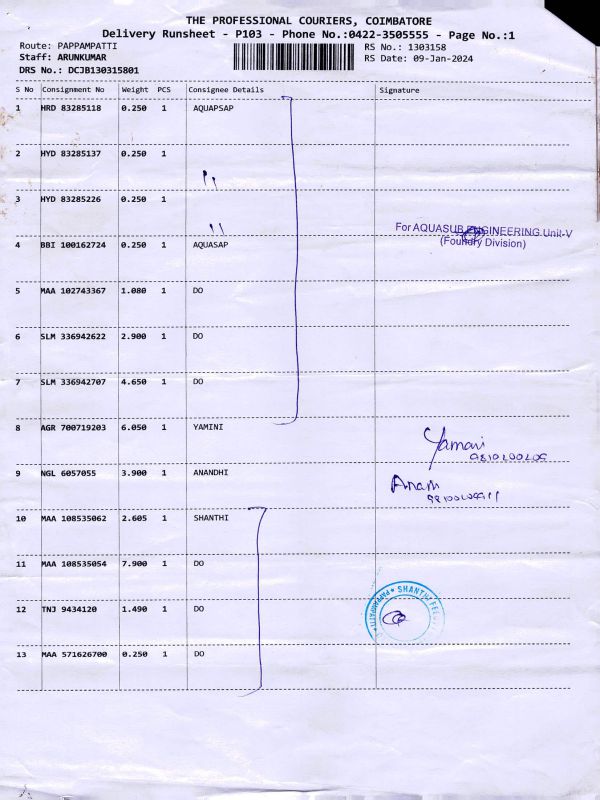 THE PROFESSIONAL COURIERS, COIMBATORE
Delivery Runsheet - P103 - Phone No.:0422-3505555 - Page No.:1
Route: PAPPAMPATTI
RS No.: 1303158
Staff: ARUNKUMAR
RS Date: 09-Jan-2024
DRS No.: DCJB130315801
S No Consignment No Weight PCS Consignee Details Signature
1 HRD 83285118 0.250 1 AQUAPSAP
2 HYD 83285137 0.250 1
''
3 HYD 83285226 0.250 1
''
For AQUASUB ENGINEERING Unit-V
(Foundry Division)
4 BBI 100162724 0.250 1 AQUASAP
5 MAA 102743367 1.080 1 DO
6 SLM 336942622 2.900 1 DO
7 SLM 336942707 4.650 1 DO
8 AGR 700719203 6.050 1 YAMINI
9 NGL 6057055 3.900 1 ANANDHI
10 MAA 108535062 2.605 1 SHANTHI
11 MAA 108535054 7.900 1 DO
12 TNJ 9434120 1.490 1 DO
SHANTHI
13 MAA 571626700 0.250 1 DO